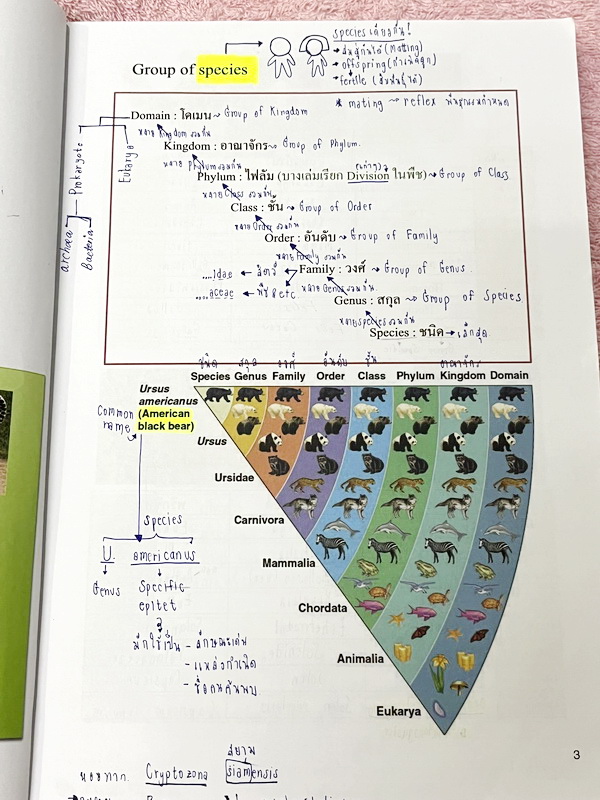 species เดียวกัน!
→ ผสมพันธุ์ได้ (Matting)
→ offspring (กำเนิดลูก)
→ fertile (สืบพันธุ์ได้)
Group of species
* mating → reflex
Domain : โดเมน → Group of Kingdom
หลาย Kingdom รวมกัน
Kingdom : อาณาจักร → Group of Phylum.
หลาย Phylum รวมกัน
Phylum : ไฟลัม (บางเล่มเรียก Division ในพืช) → Group of Class
หลาย Class รวมกัน
Class : ชั้น → Group of Order
หลาย Order รวมกัน
Order : อันดับ → Group of Family
หลาย Family รวมกัน
....idae ← สัตว์ Family : วงศ์ → Group of Genus
....aceae ← พืช etc. หลาย Genus รวมกัน
Genus : สกุล → Group of Species
หลาย species รวมกัน
Species : ชนิด → เล็กสุด
Prokaryote
Eukarya
archaea
Bacteria
ชนิด สกุล วงศ์ อันดับ ชั้น อาณาจักร
Species Genus Family Order Class Phylum Kingdom Domain
Ursus americanus (American black bear)
Common name
Ursus
Ursidae
Carnivora
Mammalia
Chordata
Animalia
Eukarya
species
U. americanus
Genus Specific epitet
มักใช้เป็น - ลักษณะเด่น
- แหล่งกำเนิด
- ชื่อคนค้นพบ
3
สยาม
หอยทาก. Cryptozona siamensis